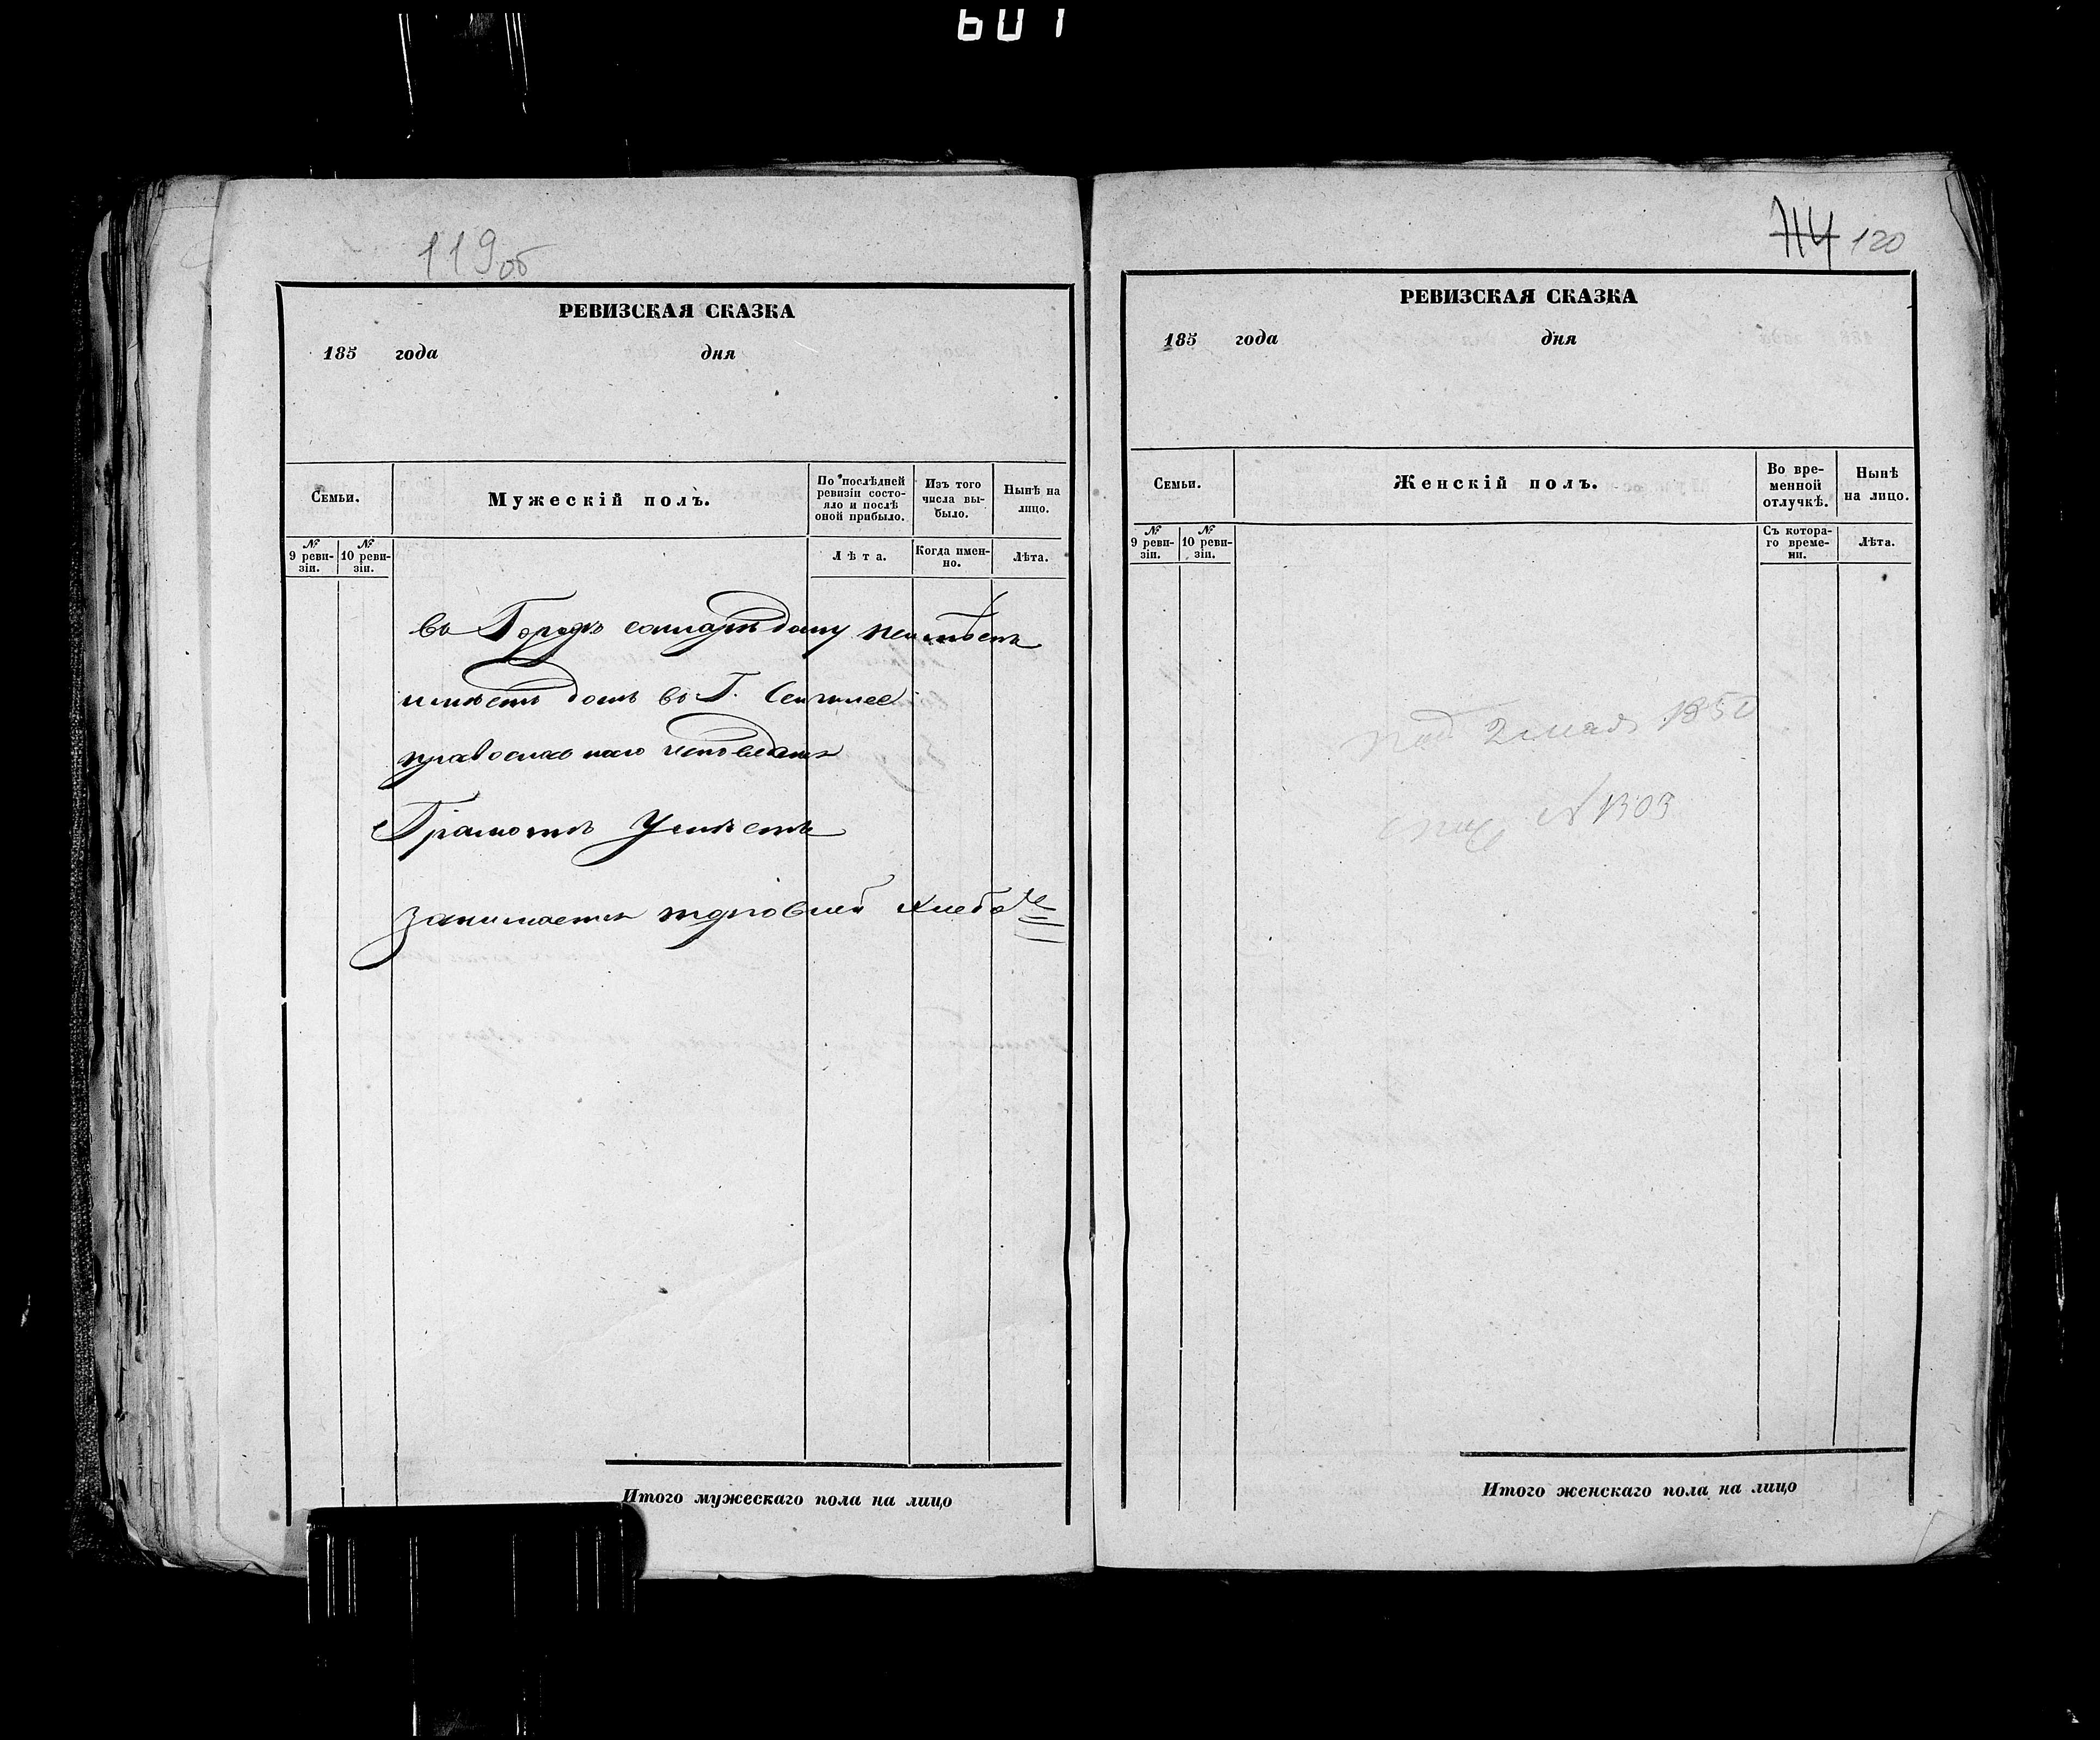 601
119об
РЕВИЗСКАЯ СКАЗКА
185 года дня
Семьи.
Мужескій полъ.
По послѣдней ревизіи состояло и послѣ оной прибыло.
Изъ того числа выбыло.
Нынѣ на лицо.
№ 9 ревизіи.
№ 10 ревизіи.
Лѣта.
Когда именно.
Лѣта.
въ Городѣ самарѣ дому неимѣетъ
имѣетъ домъ въ Г.
православнаго исповеданія
Грамотѣ Умѣетъ
занимается торговлей хлеба
Итого мужескаго пола на лицо
114 120
РЕВИЗСКАЯ СКАЗКА
185 года дня
Семьи.
Женскій полъ.
Во временной отлучкѣ.
Нынѣ на лицо.
№ 9 ревизіи.
№ 10 ревизіи.
Съ котораго времени.
Лѣта.
под 2 мая 1850
№ 1303
Итого женскаго пола на лицо